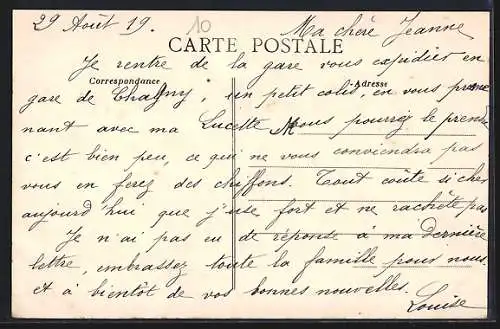 29 Août 19. 10 Ma chère Jeanne
CARTE POSTALE
Je rentre de la gare vous expédier en
Correspondance Adresse
gare de Chagny, un petit colis, en vous prome
nant avec ma Lucette vous pourrez le prendre
c'est bien peu, ce qui ne vous conviendra pas
vous en ferez des chiffons. Tout coûte si cher
aujourd'hui que j'use fort et ne rachète pas
Je n'ai pas eu de réponse à ma dernière
lettre, embrassez toute la famille pour nous
et à bientôt de vos bonnes nouvelles.
Louise